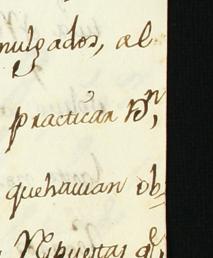 mulgados, al
practican Rˢⁿ,
que havian ob
Respuestas q͂,